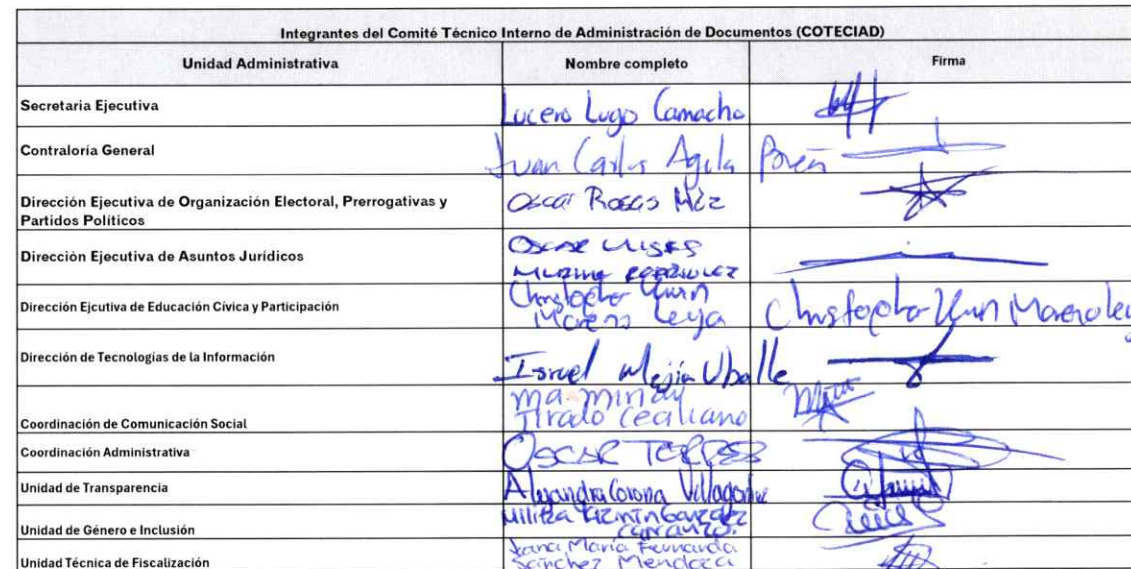 Integrantes del Comité Técnico Interno de Administración de Documentos (COTECIAD)
Unidad Administrativa Nombre completo Firma
Secretaria Ejecutiva Lucero Lugo Camacho
Contraloría General Juan Carlos Agila
Dirección Ejecutiva de Organización Electoral, Prerrogativas y Oscar Rosas
Partidos Políticos
Dirección Ejecutiva de Asuntos Jurídicos Oscar
Dirección Ejcutiva de Educación Cívica y Participación Christopher
Moreno Leyja
Dirección de Tecnologías de la Información Israel Mejía Uballe
Ma.
Coordinación de Comunicación Social Tirado
Coordinación Administrativa OSCAR TORRES
Unidad de Transparencia Alejandra Corona
Unidad de Género e Inclusión
María Fernanda
Unidad Técnica de Fiscalización Sánchez Mendoza